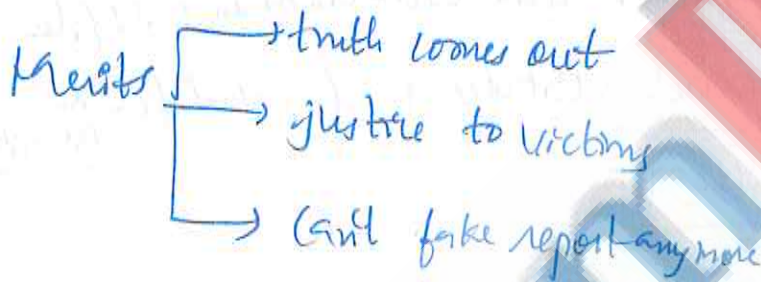 Merits
truth comes out
justice to victims
Can't fake report anymore